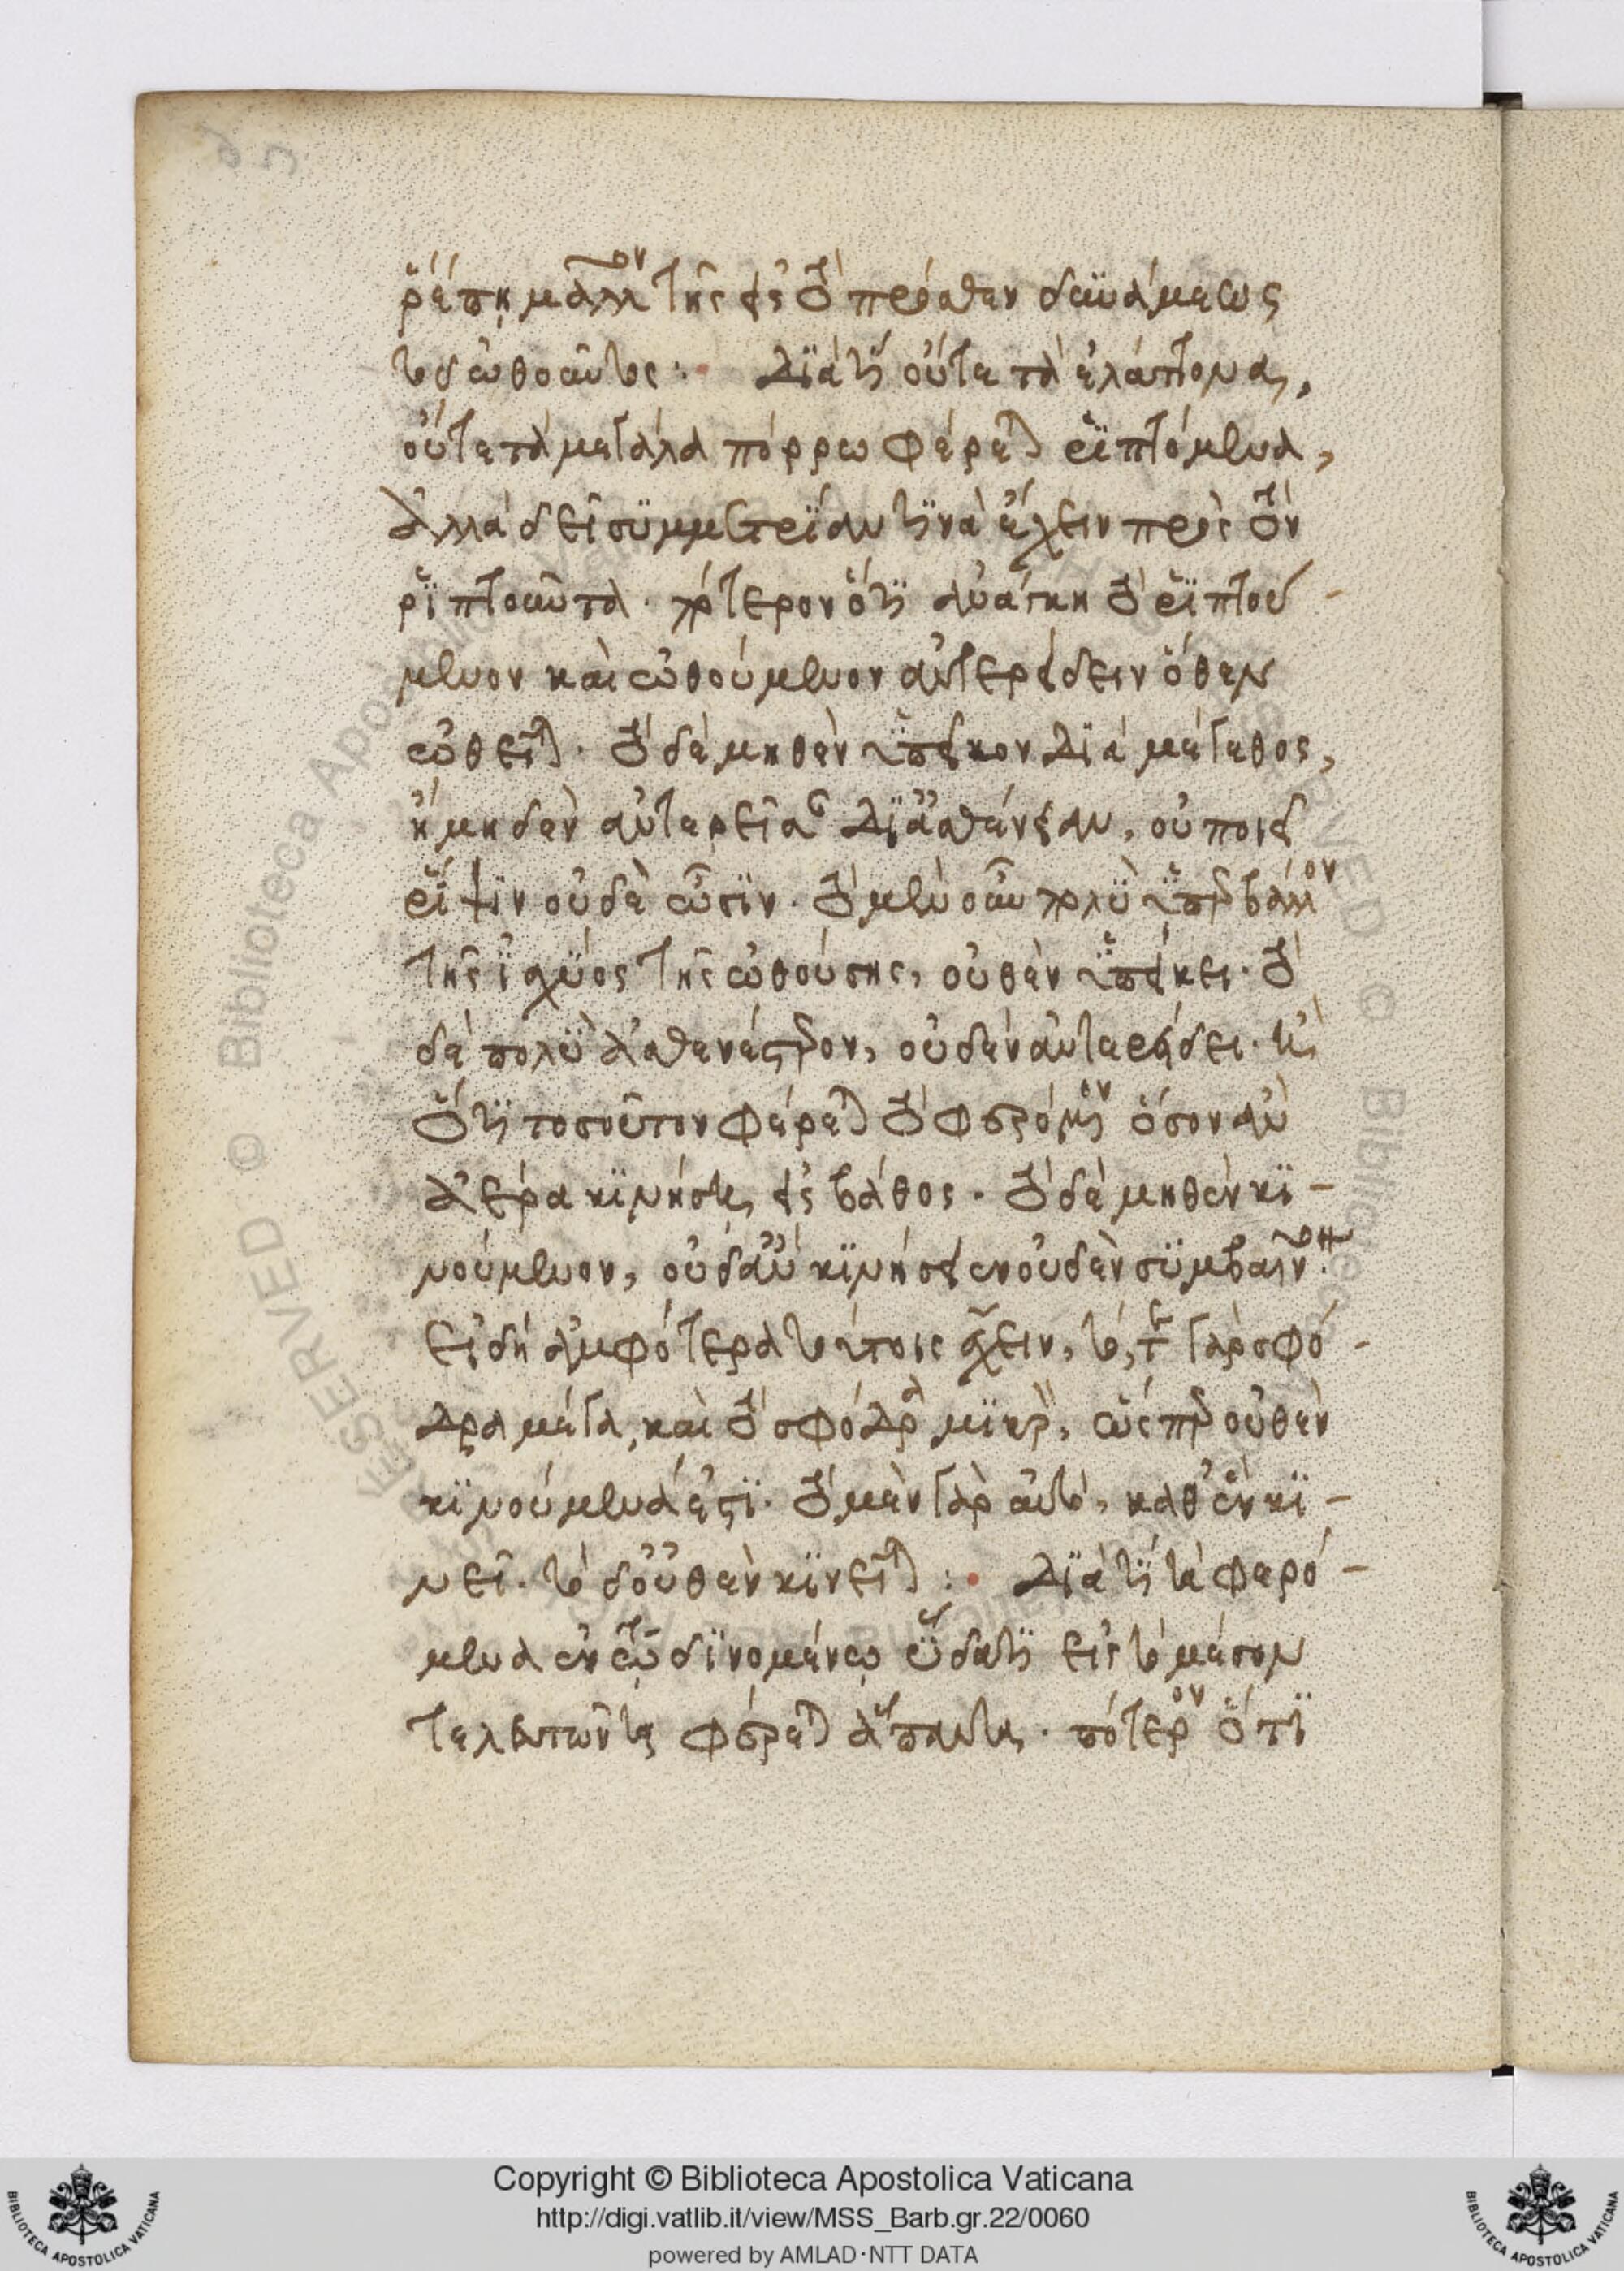 ῥέπῃ μᾶλλον τῆς εἰς τὸ πρόσθεν δυνάμεως
τοῦ ὠθοῦντος :· Διὰ τί οὔτε τὰ ἐλάττονα,
οὔτε τὰ μεγάλα πόρρω φέρεται ῥιπτόμενα,
ἀλλὰ δεῖ συμμετρίαν τινὰ ἔχειν πρὸς τὸν
ῥιπτοῦντα· πότερον ὅτι ἀνάγκη τὸ ῥιπτού-
μενον καὶ ὠθούμενον ἀντερείδειν ὅθεν
ὠθεῖται· τὸ δὲ μηθὲν ὑπεῖκον διὰ μέγεθος,
ἢ μηδὲν ἀντερεῖσαν δι' ἀσθένειαν, οὐ ποιεῖ
ῥῖψιν οὐδὲ ὦσιν· τὸ μὲν οὖν πολὺ ὑπερβάλλον
τῆς ἰσχύος τῆς ὠθούσης, οὐθὲν ὑπείκει· τὸ
δὲ πολὺ ἀσθενέστερον, οὐδὲν ἀντερείδει· ἢ
ὅτι τοσοῦτον φέρεται τὸ φερόμενον ὅσον ἂν
ἀέρα κινήσῃ εἰς βάθος· τὸ δὲ μηθὲν κι-
νούμενον, οὐδ' ἂν κινήσειεν οὐδὲν συμβαίνει
δὴ ἀμφότερα τούτοις ἔχειν, τό, τε γὰρ σφό-
δρα μέγα, καὶ τὸ σφόδρα μικρόν, ὥσπερ οὐθὲν
κινούμενά ἐστι· τὸ μὲν γὰρ αὐτό, καθ' ἓν κι-
νεῖ· τὸ δ' οὐθὲν κινεῖται :· Διὰ τί τὰ φερό-
μενα ἐν τῷ δινομένῳ ὕδατι εἰς τὸ μέσον
τελευτῶντα φέρεται ἅπαντα· πότερον ὅτι
Copyright © Biblioteca Apostolica Vaticana
http://digi.vatlib.it/view/MSS_Barb.gr.22/0060
powered by AMLAD·NTT DATA